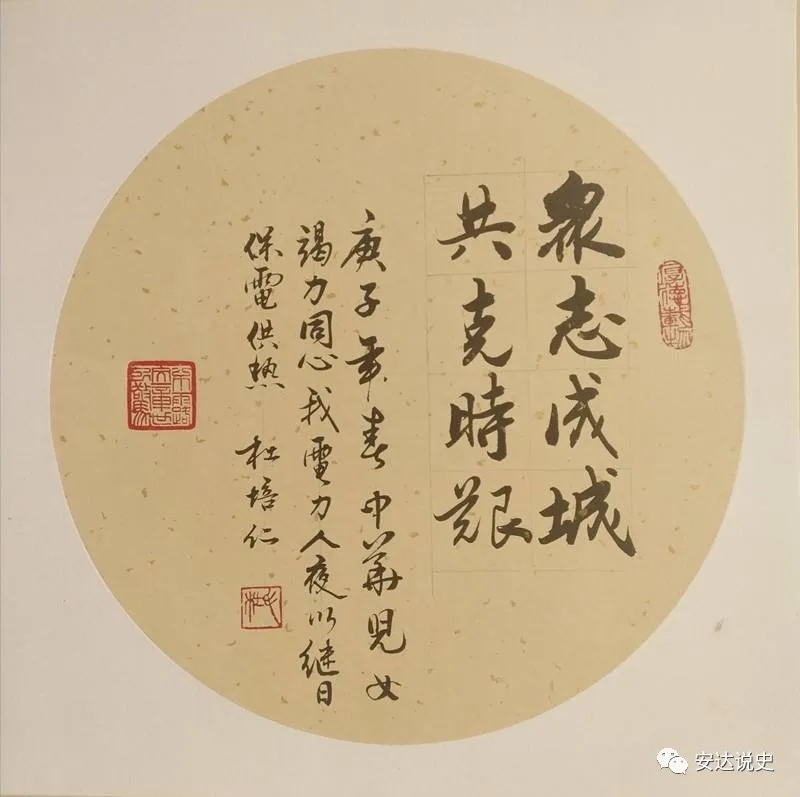 眾志成城
共克時艱
庚子年春中華兒女
竭力同心我電力人夜以继日
保電供热 杜培仁
厚德載物
安达说史